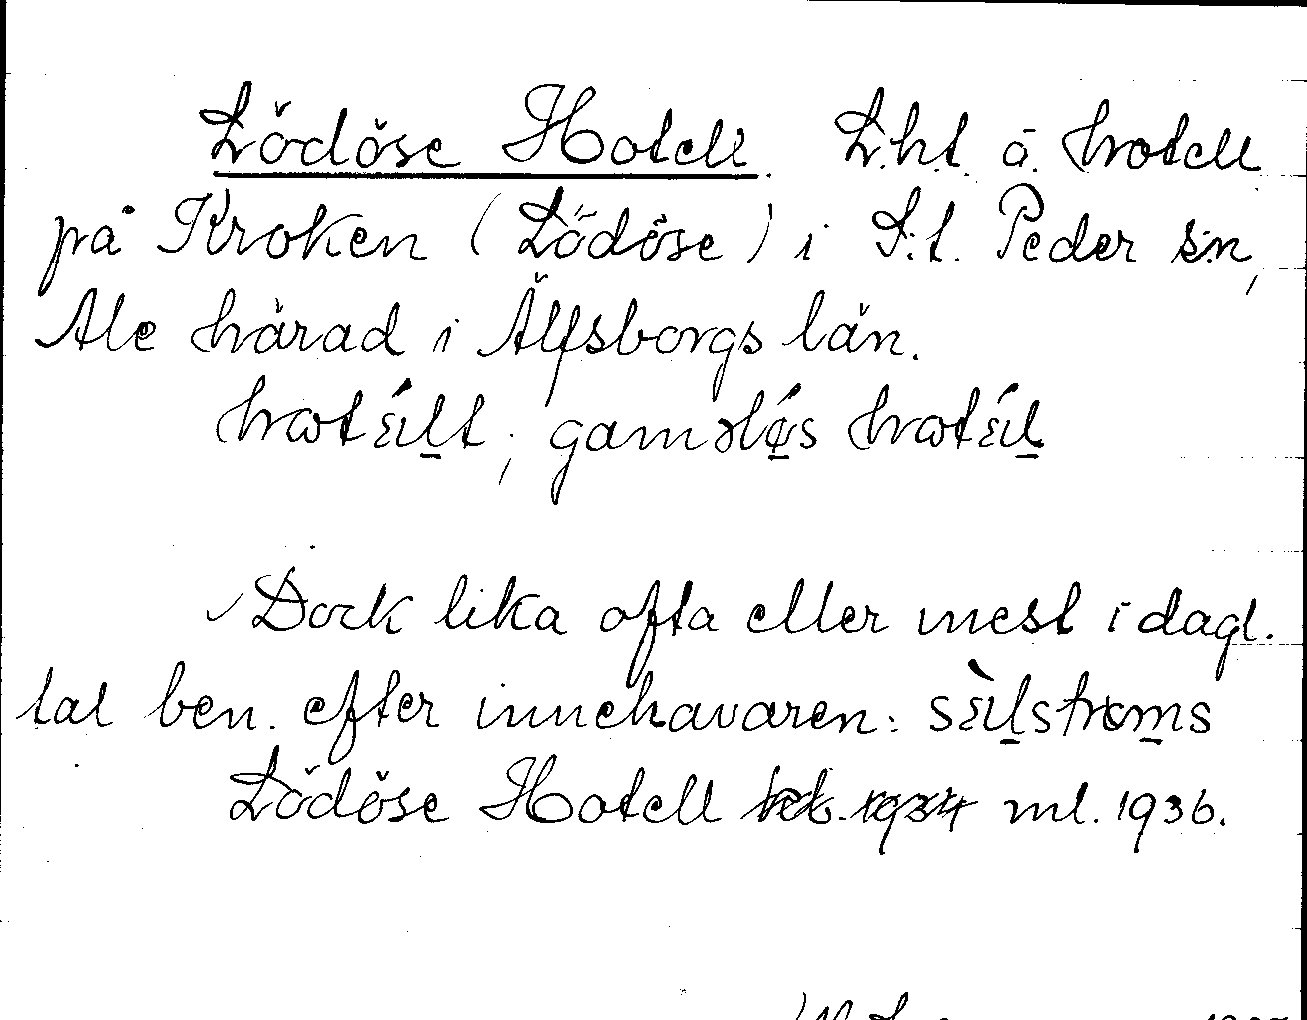 Lödöse Hotell. L.h.t. å. hotell
på Kroken (Lödöse) i S:t. Peder sn,
Ale härad i Älfsborgs län.
hotä́lt, gamələ́s hotä́l
Dock lika ofta eller mest i dagl.
tal ben. efter innehavaren: sä̀lstroms
Lödöse Hotell ml. 1936.